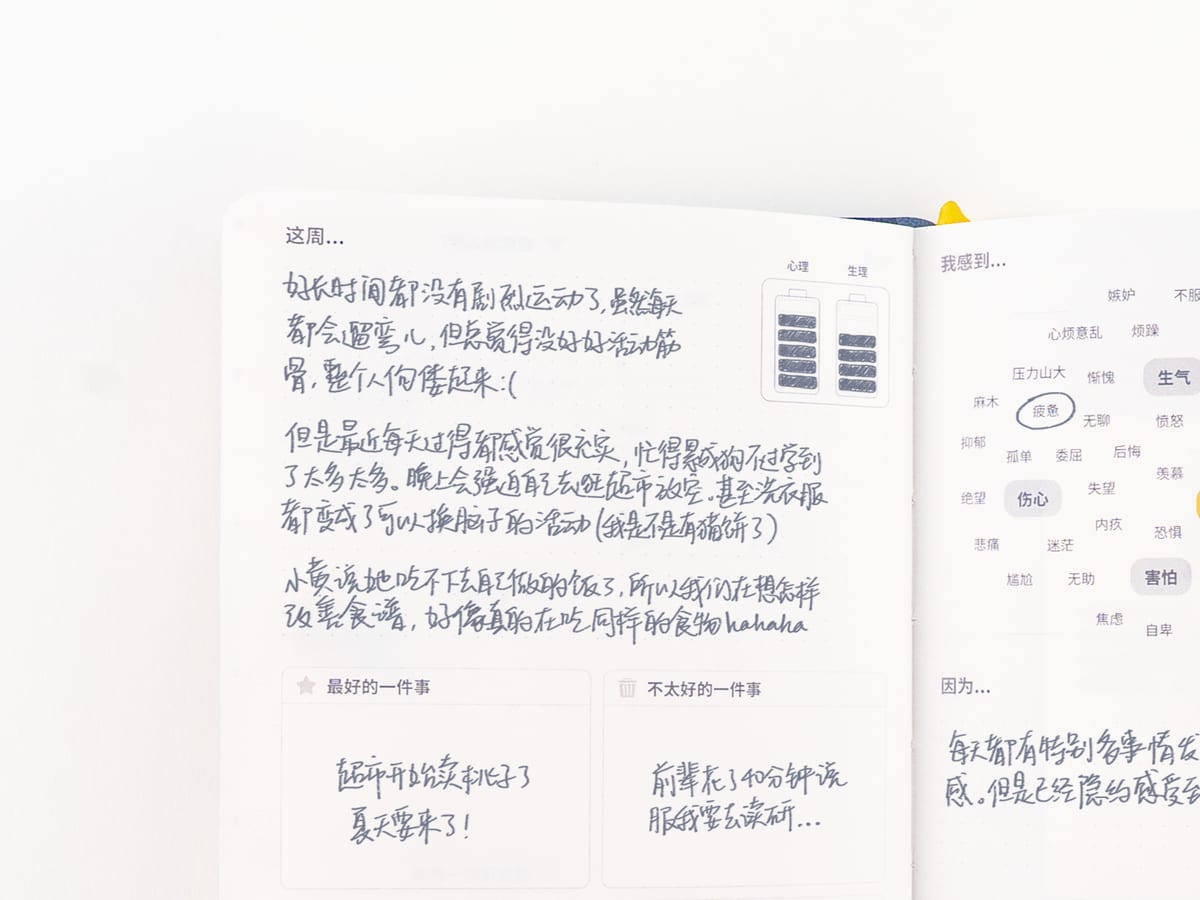 这周...
心理
生理
好长时间都没有剧烈运动了,虽然每天
都会遛弯儿,但总觉得没好好活动筋
骨,整个人佝偻起来:(
但是最近每天过得都感觉很充实,忙得累成狗不过学到
了太多太多。晚上会强迫自己去逛超市放空。甚至洗衣服
都变成了可以换脑子的活动(我是不是有猫饼了)
小黄说她吃不下去自己做的饭了,所以我们在想怎样
改善食谱,好像真的在吃同样的食物hahaha
最好的一件事
超市开始卖桃子了
夏天要来了!
不太好的一件事
前辈花了40分钟说
服我要去读研...
我感到...
嫉妒
不服
心烦意乱
烦躁
压力山大
惭愧
生气
麻木
疲惫
无聊
愤怒
抑郁
孤单
委屈
后悔
羡慕
绝望
伤心
失望
内疚
恐惧
悲痛
迷茫
尴尬
无助
害怕
焦虑
自卑
因为...
每天都有特别多事情发
感。但是已经隐约感受到